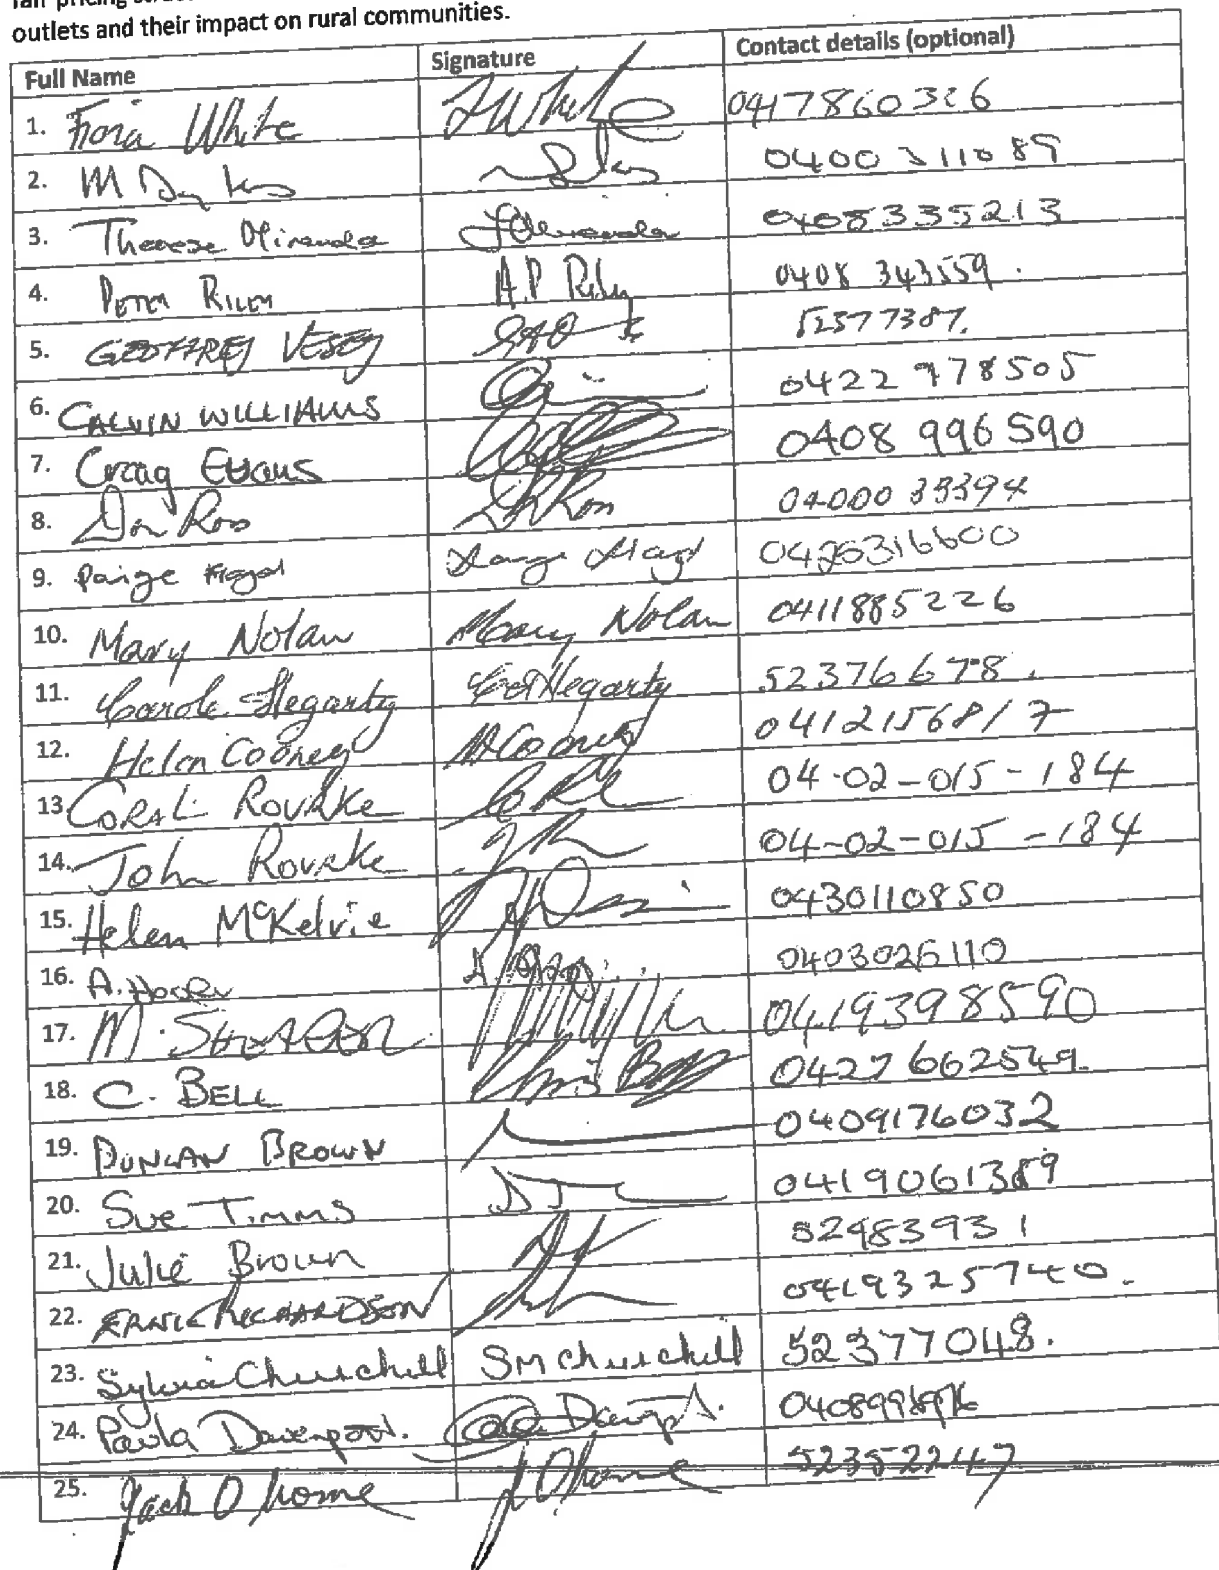 outlets and their impact on rural communities.
Full Name Signature Contact details (optional)
1. Fiona White FWhite 0417860326
2. M Dykes 0400 311089
3. Therese Miranda TMiranda 0408335213
4. Peter Riley A.P Riley 0408 343559.
5. GEOFFREY VESEY 52577387.
6. CALVIN WILLIAMS 0422 978505
7. Craig Evans 0408 996 590
8. Don Ross D Ross 0400033394
9. Paige 0426316600
10. Mary Nolan Mary Nolan 0411885226
11. Carole Hegarty Hegarty 52376678.
12. Helen Cooney H Cooney 0412156817
13. CORAL ROURKE 04-02-015-184
14. John Rourke JR 04-02-015-184
15. Helen McKelvie 0430110850
16. A. 0403026110
17. M. 0419398590
18. C. BELL Chris Bell 0427 662549.
19. DUNCAN BROWN 0409176032
20. Sue Timms 0419061389
21. Julie Brown 52483931
22. ERNIE RICHARDSON 0419325740.
23. Sylvia Churchill SM Churchill 52377048.
24. Paula Davenport.
25. Jack O horne J O horne 52352247